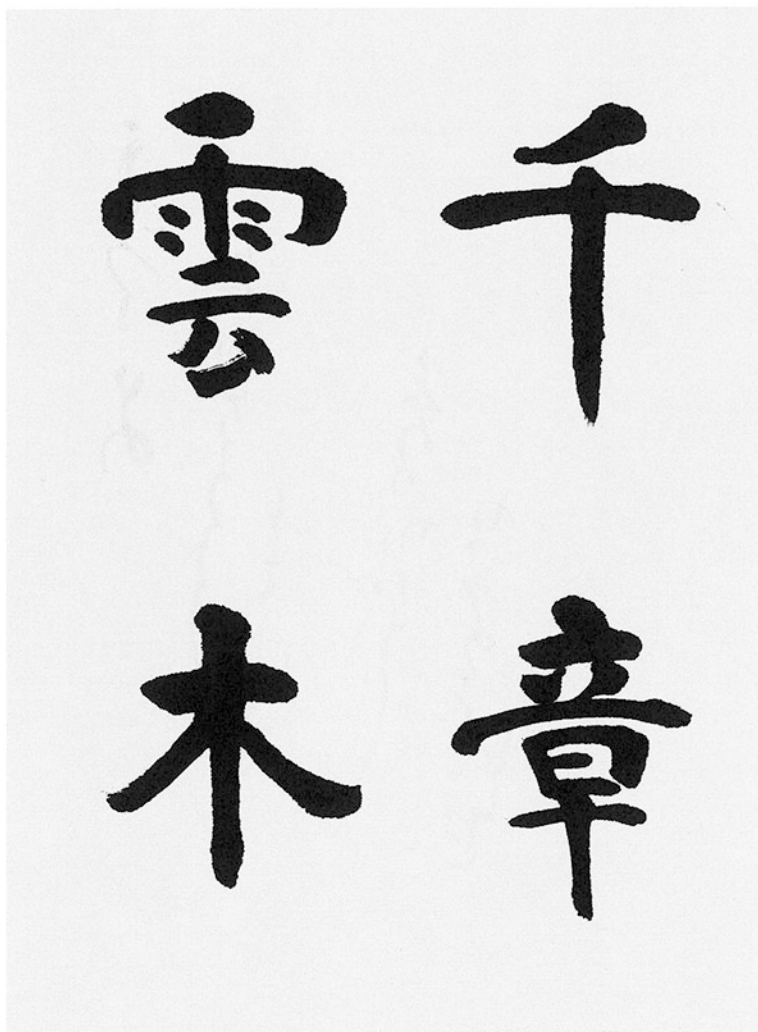 千章
雲木